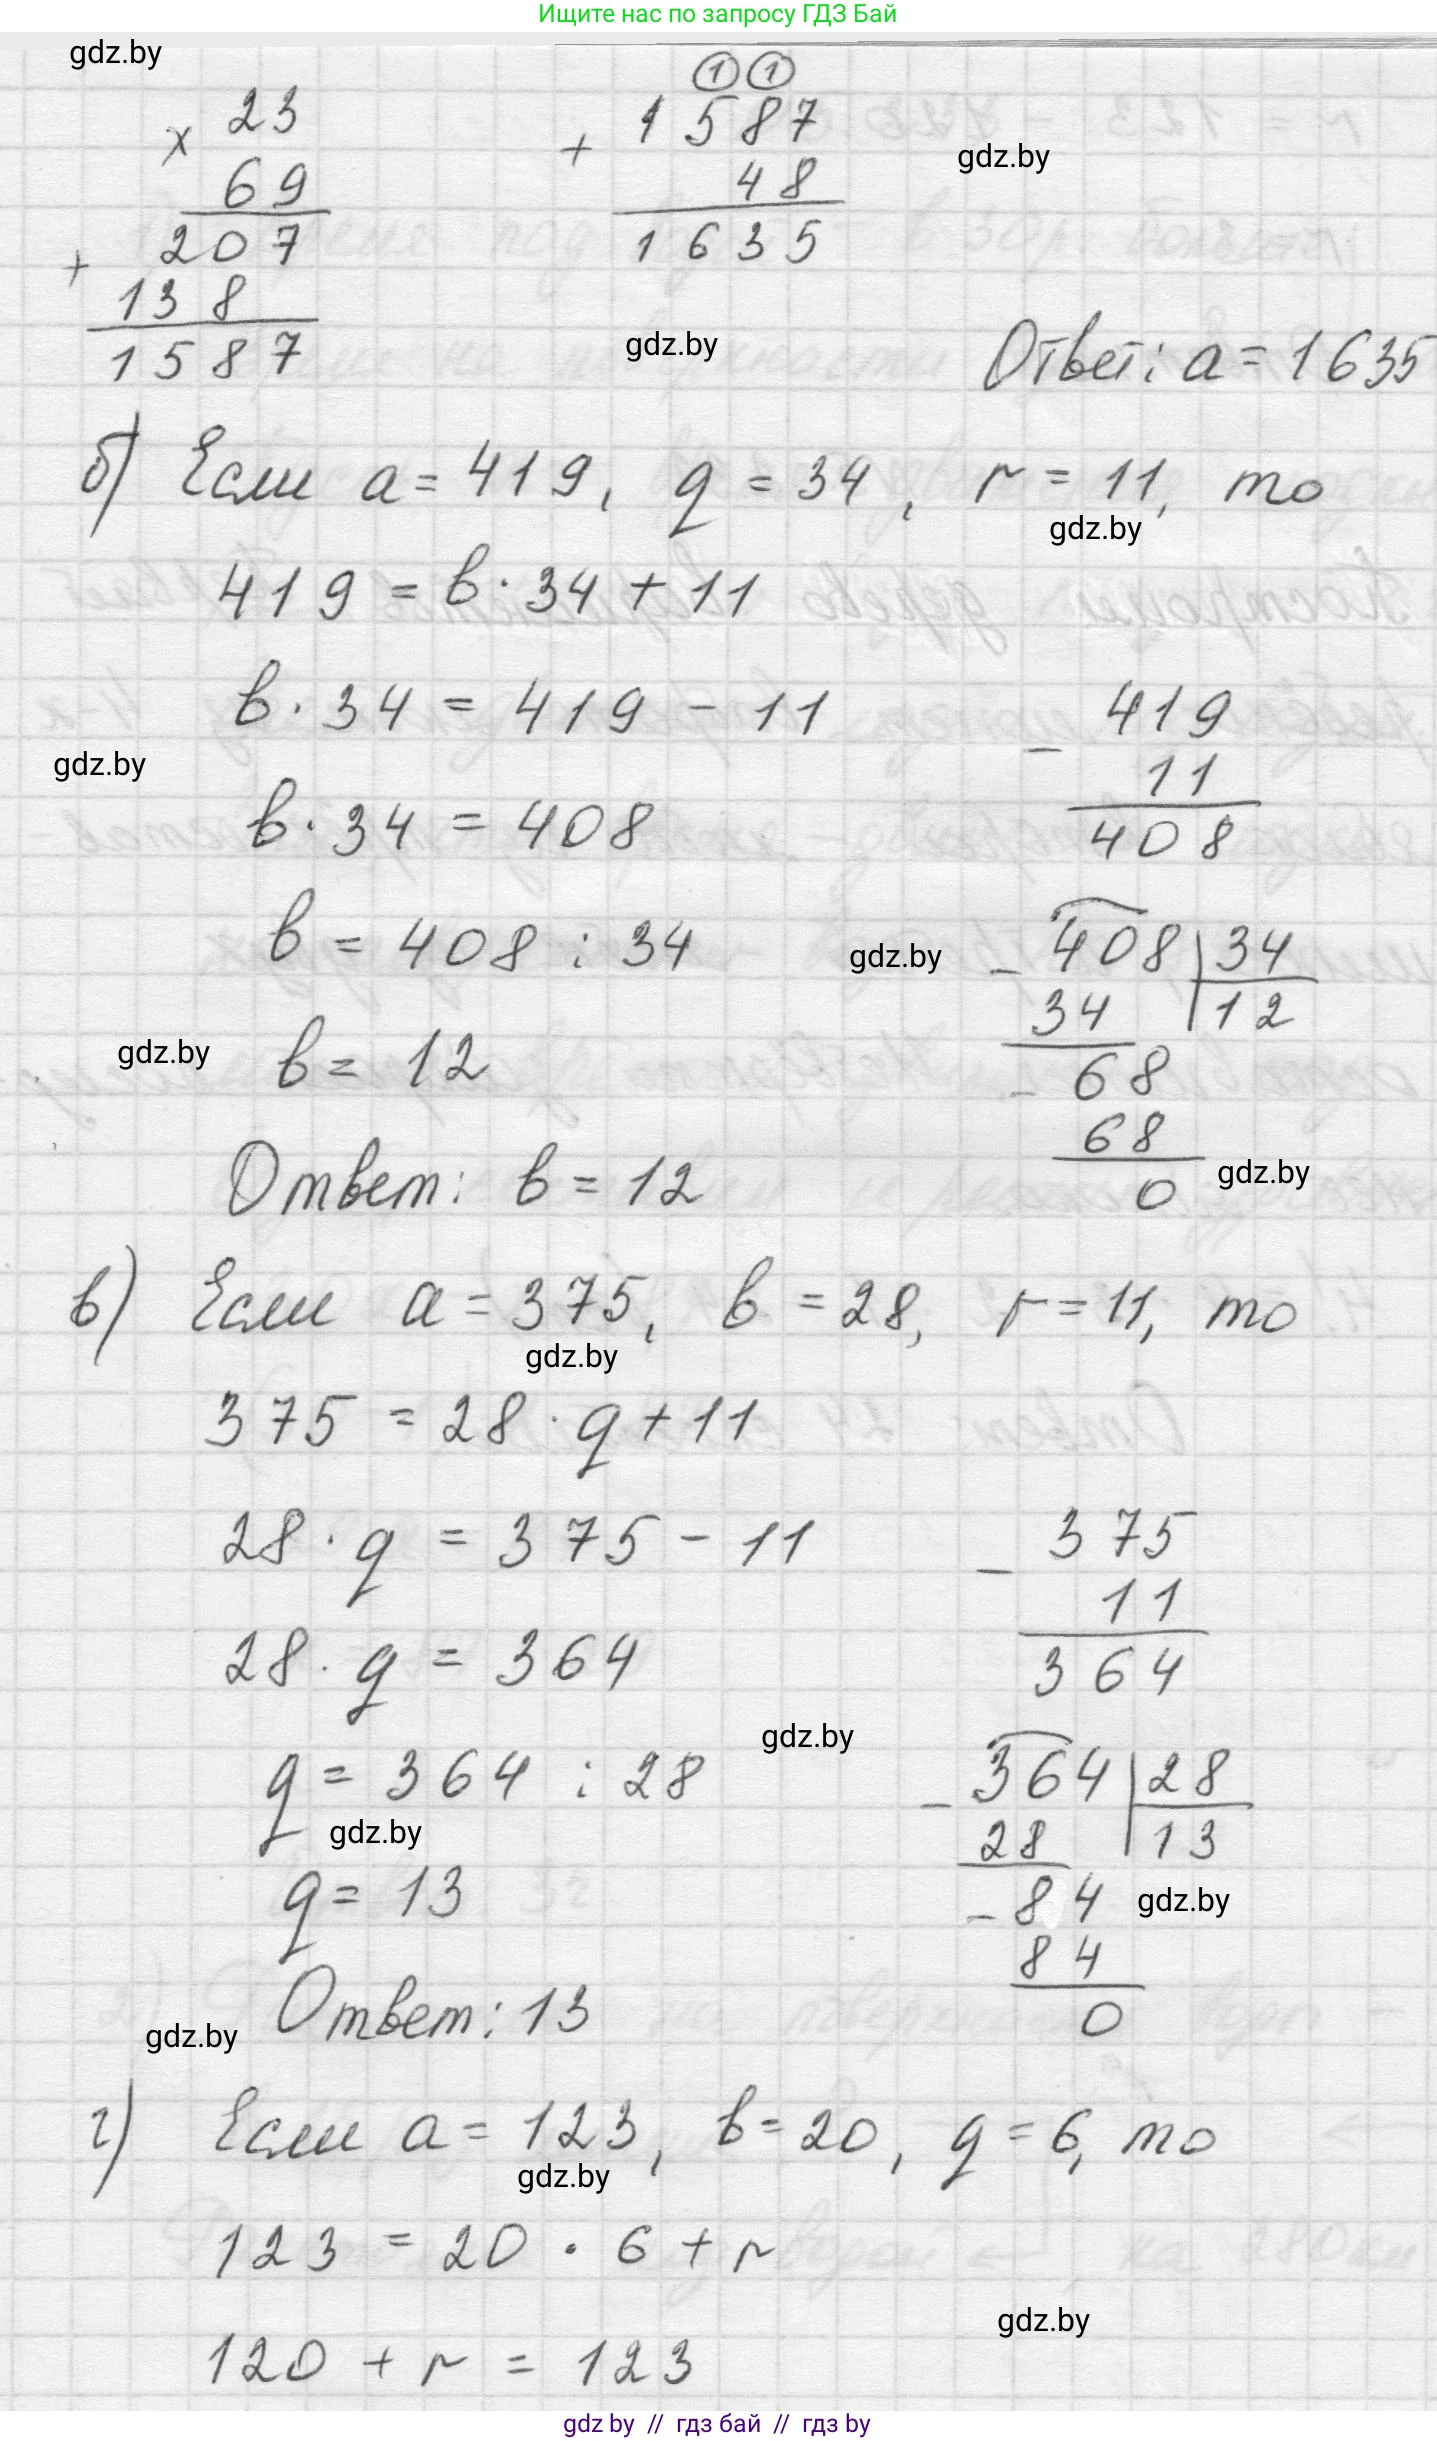 Ищите нас по запросу ГДЗ Бай
gdz.by
× 23
69
+ 207
138
1587
1 1
+ 1587
48
1635
gdz.by
gdz.by
Ответ: a = 1635
б) Если a = 419, q = 34, r = 11, то
gdz.by
419 = b · 34 + 11
b · 34 = 419 - 11
- 419
11
408
gdz.by
b · 34 = 408
b = 408 : 34
gdz.by
- 408 34
34 12
- 68
68
0
gdz.by
b = 12
gdz.by
Ответ: b = 12
в) Если a = 375, b = 28, r = 11, то
gdz.by
375 = 28 · q + 11
28 · q = 375 - 11
- 375
11
364
28 · q = 364
gdz.by
q = 364 : 28
- 364 28
28 13
- 84
84
0
gdz.by
gdz.by
q = 13
Ответ: 13
gdz.by
г) Если a = 123, b = 20, q = 6, то
gdz.by
123 = 20 · 6 + r
gdz.by
120 + r = 123
gdz by // гдз бай // гдз by